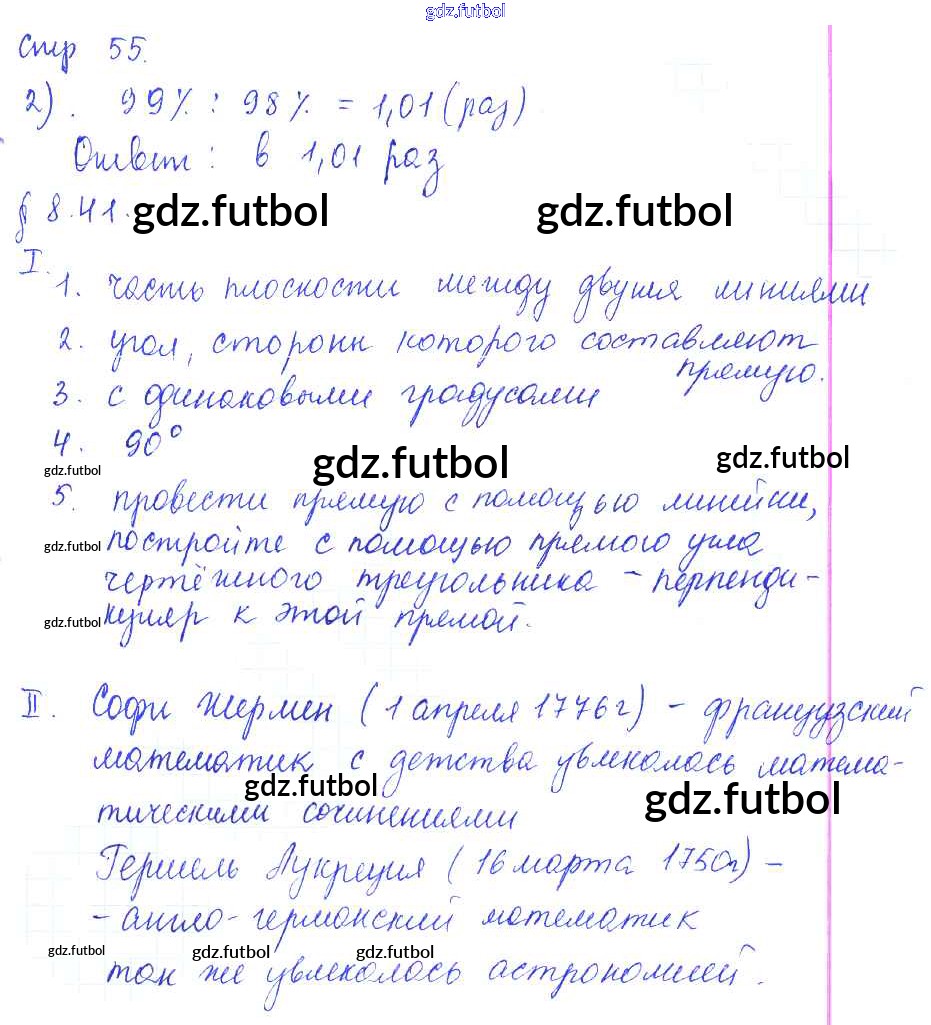 gdz.futbol
Стр 55.
2). 99% : 98% = 1,01 (раз)
Ответ: в 1,01 раз
§ 8.41. gdz.futbol gdz.futbol
I.
1. часть плоскости между двумя линиями
2. угол, стороны которого составляют
прямую.
3. с одинаковыми градусами
4. 90°
gdz.futbol gdz.futbol gdz.futbol
5. провести прямую с помощью линейки,
gdz.futbol постройте с помощью прямого угла
чертёжного треугольника - перпенди-
gdz.futbol куляр к этой прямой.
II. Софи Жермен (1 апреля 1776г) - французский
математик с детства увлекалась матема-
gdz.futbol gdz.futbol
тическими сочинениями
Гершель Лукреция (16 марта 1750г) -
- англо-германский математик
gdz.futbol gdz.futbol gdz.futbol
так же увлекалась астрономией.